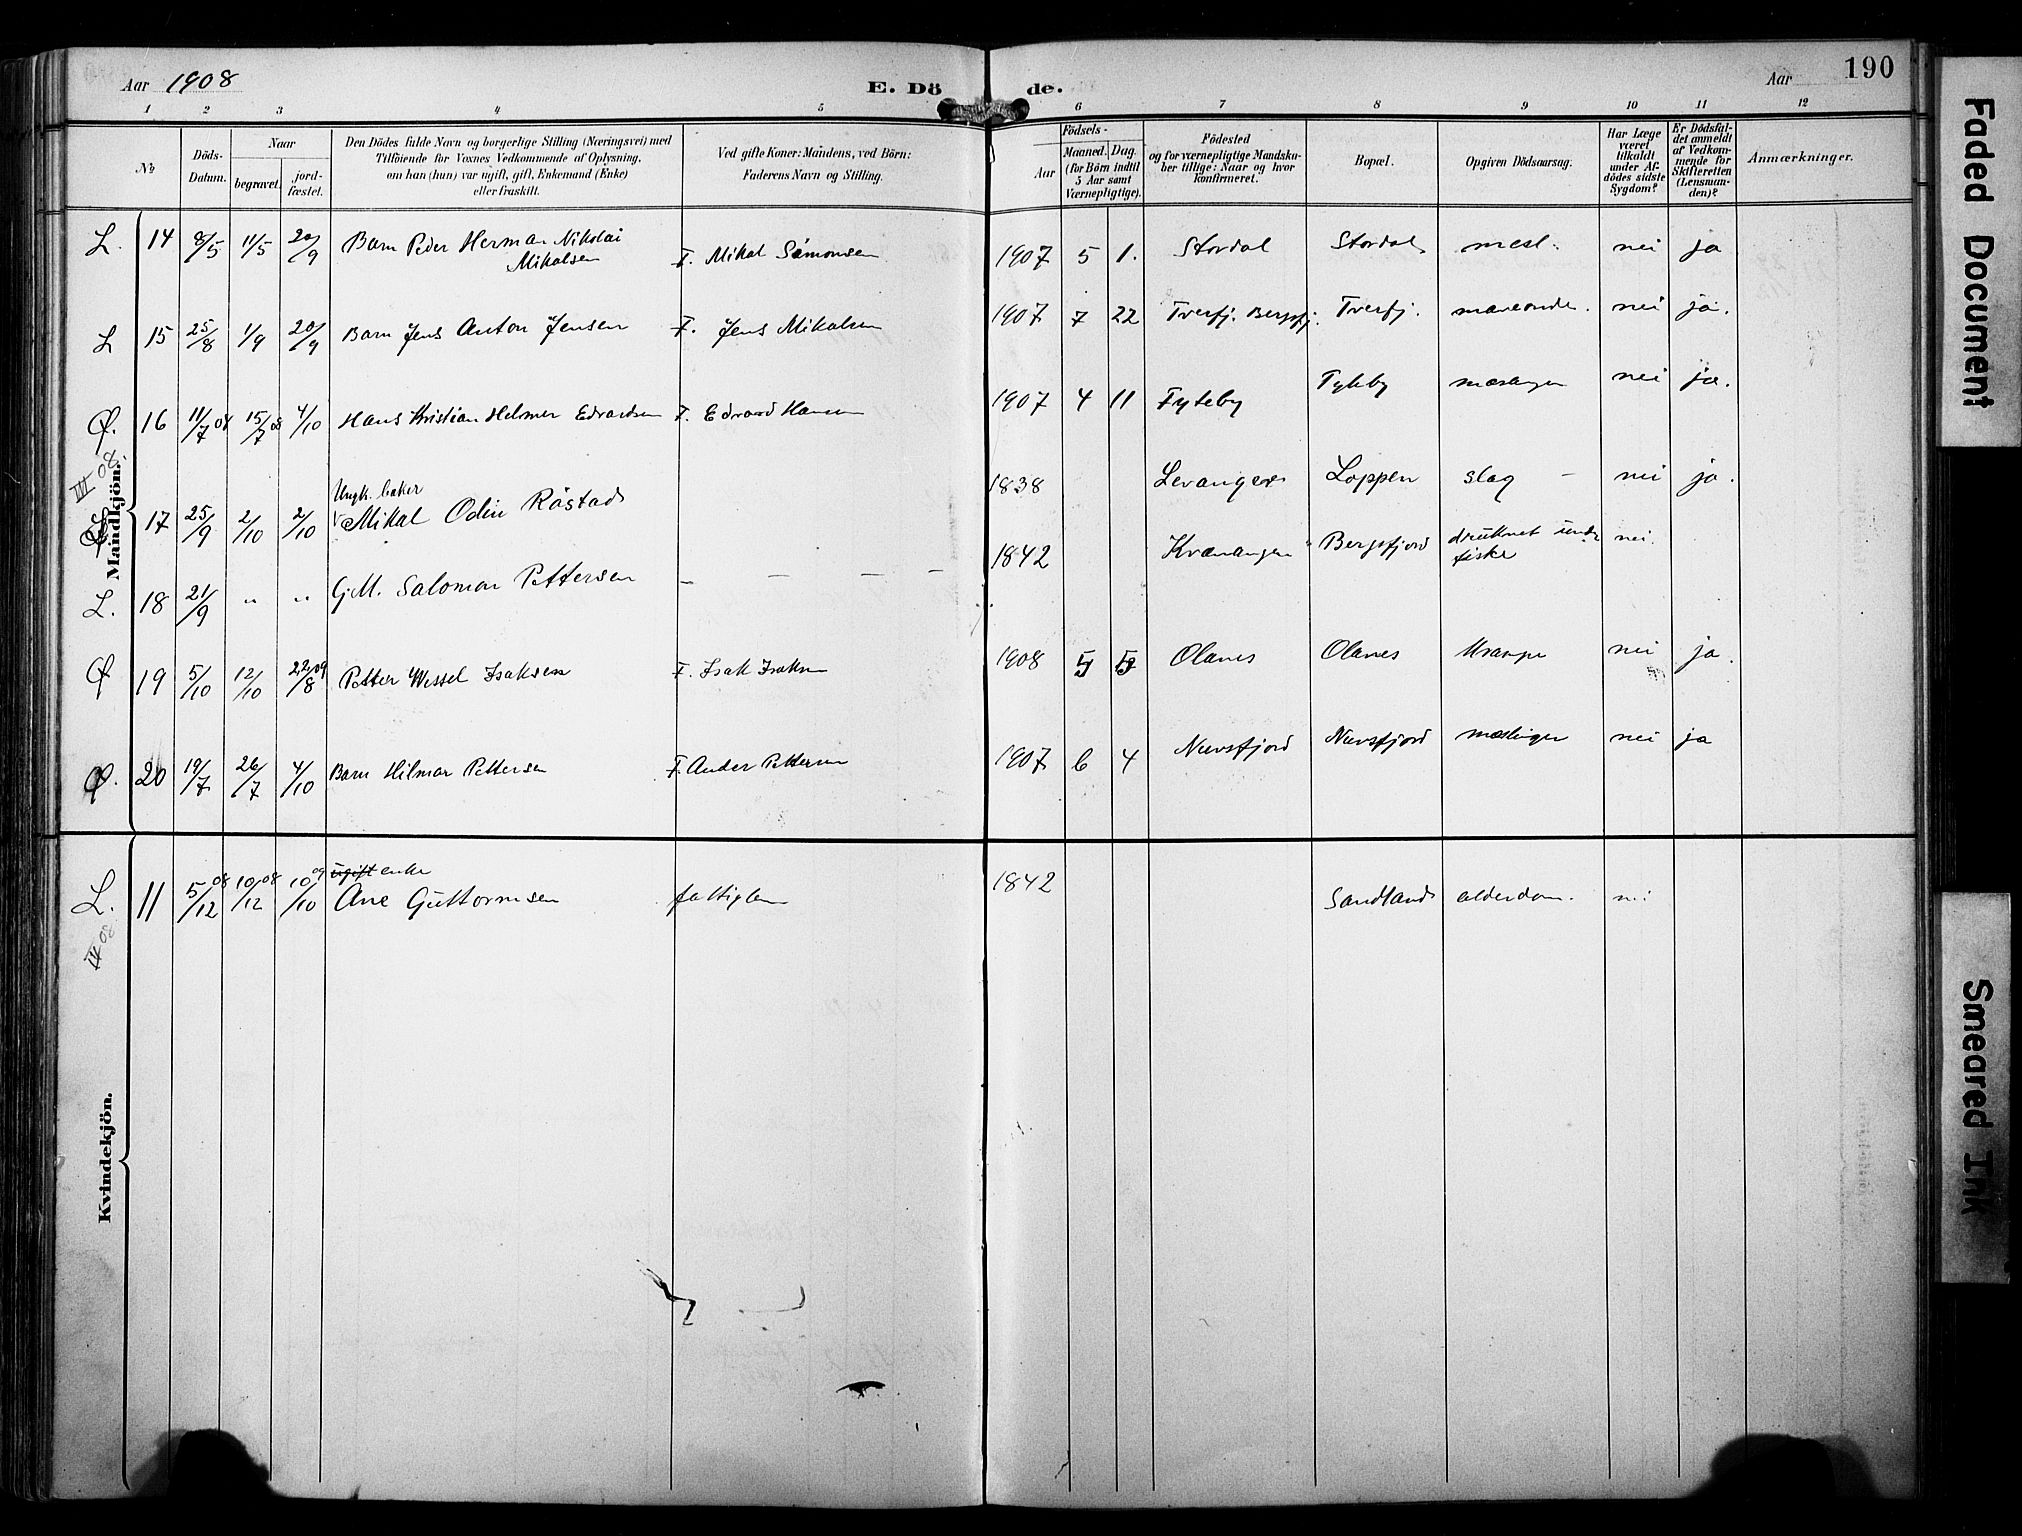 Aar 1908 E. Döde. Aar 190
1 2 3 4 5 6 7 8 9 10 11 12
No
Döds-Datum.
Naar
begravet.
jord-fæstet.
Den Dödes fulde Navn og borgerlige Stilling (Næringsvei) med
Tilföiende for Voxnes Vedkommende af Oplysning,
om han (hun) var ugift, gift, Enkemand (Enke)
eller fraskilt.
Ved gifte Koner: Mandens, ved Börn:
Faderens Navn og Stilling.
Födsels-
Aar
Maaned. Dag.
(for Börn indtil
5 Aar samt
Værnepligtige).
Födested
og for værnepligtige Mandskaber tillige: Naar og hvor
konfirmeret.
Bopæl.
Opgiven Dödsaarsag.
Har Læge
været
tilkaldt
under Afdödes sidste
Sygdom?
Er Dödsfaldet anmeldt
af Vedkommende for
Skifteretten
(Lensmanden)?
Anmærkninger.
L. 14 8/5 11/5 20/9 Barn Peder Herman Nikolai Mikalsen F. Mikal Simonsen 1907 5 1. Stordal Stordal mesl. nei ja
L 15 25/8 1/9 20/9 Barn Jens Anton Jensen F. Jens Mikalsen 1907 7 22 Tverfj. Bergsfj. Tverfj. maveonde. nei ja.
Ø. 16 11/7 08 15/7 08 4/10 Hans Kristian Helmer Edvardsen F. Edvard Hansen 1907 4 11 Fyteby Tyteby mæslinger nei ja.
III 08
17 25/9 2/10 2/10 Ungk. baker Mikal Odin Råstad 1838 Levanger Loppen slag – nei ja.
L. 18 21/9 " " G.M. Salomon Pettersen – – – – 1842 Kvænangen Bergsfjord druknet under fiske nei.
Ø 19 5/10 12/10 22/8 09 Petter Wessel Isaksen F. Isak Isaksen 1908 5 Olanes Olanes Krampe nei ja.
Ø. 20 19/7 26/7 4/10 Barn Hilmar Pettersen F. Ander Pettersen 1907 6 4 Nuvsfjord Nuvsfjord mæslinger nei ja
Mandkjön.
L. 11 5/12 08 10/12 08 10/10 09 ugift enke Ane Guttormsen fattiglem 1842 Sandland alderdom. nei
IV 08
Kvindekjön.
Faded Document
Smeared Ink